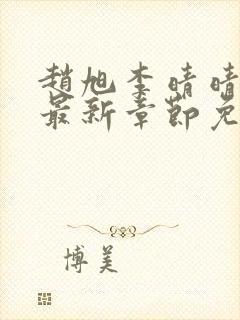 趙旭李晴晴
最新章節免
博美